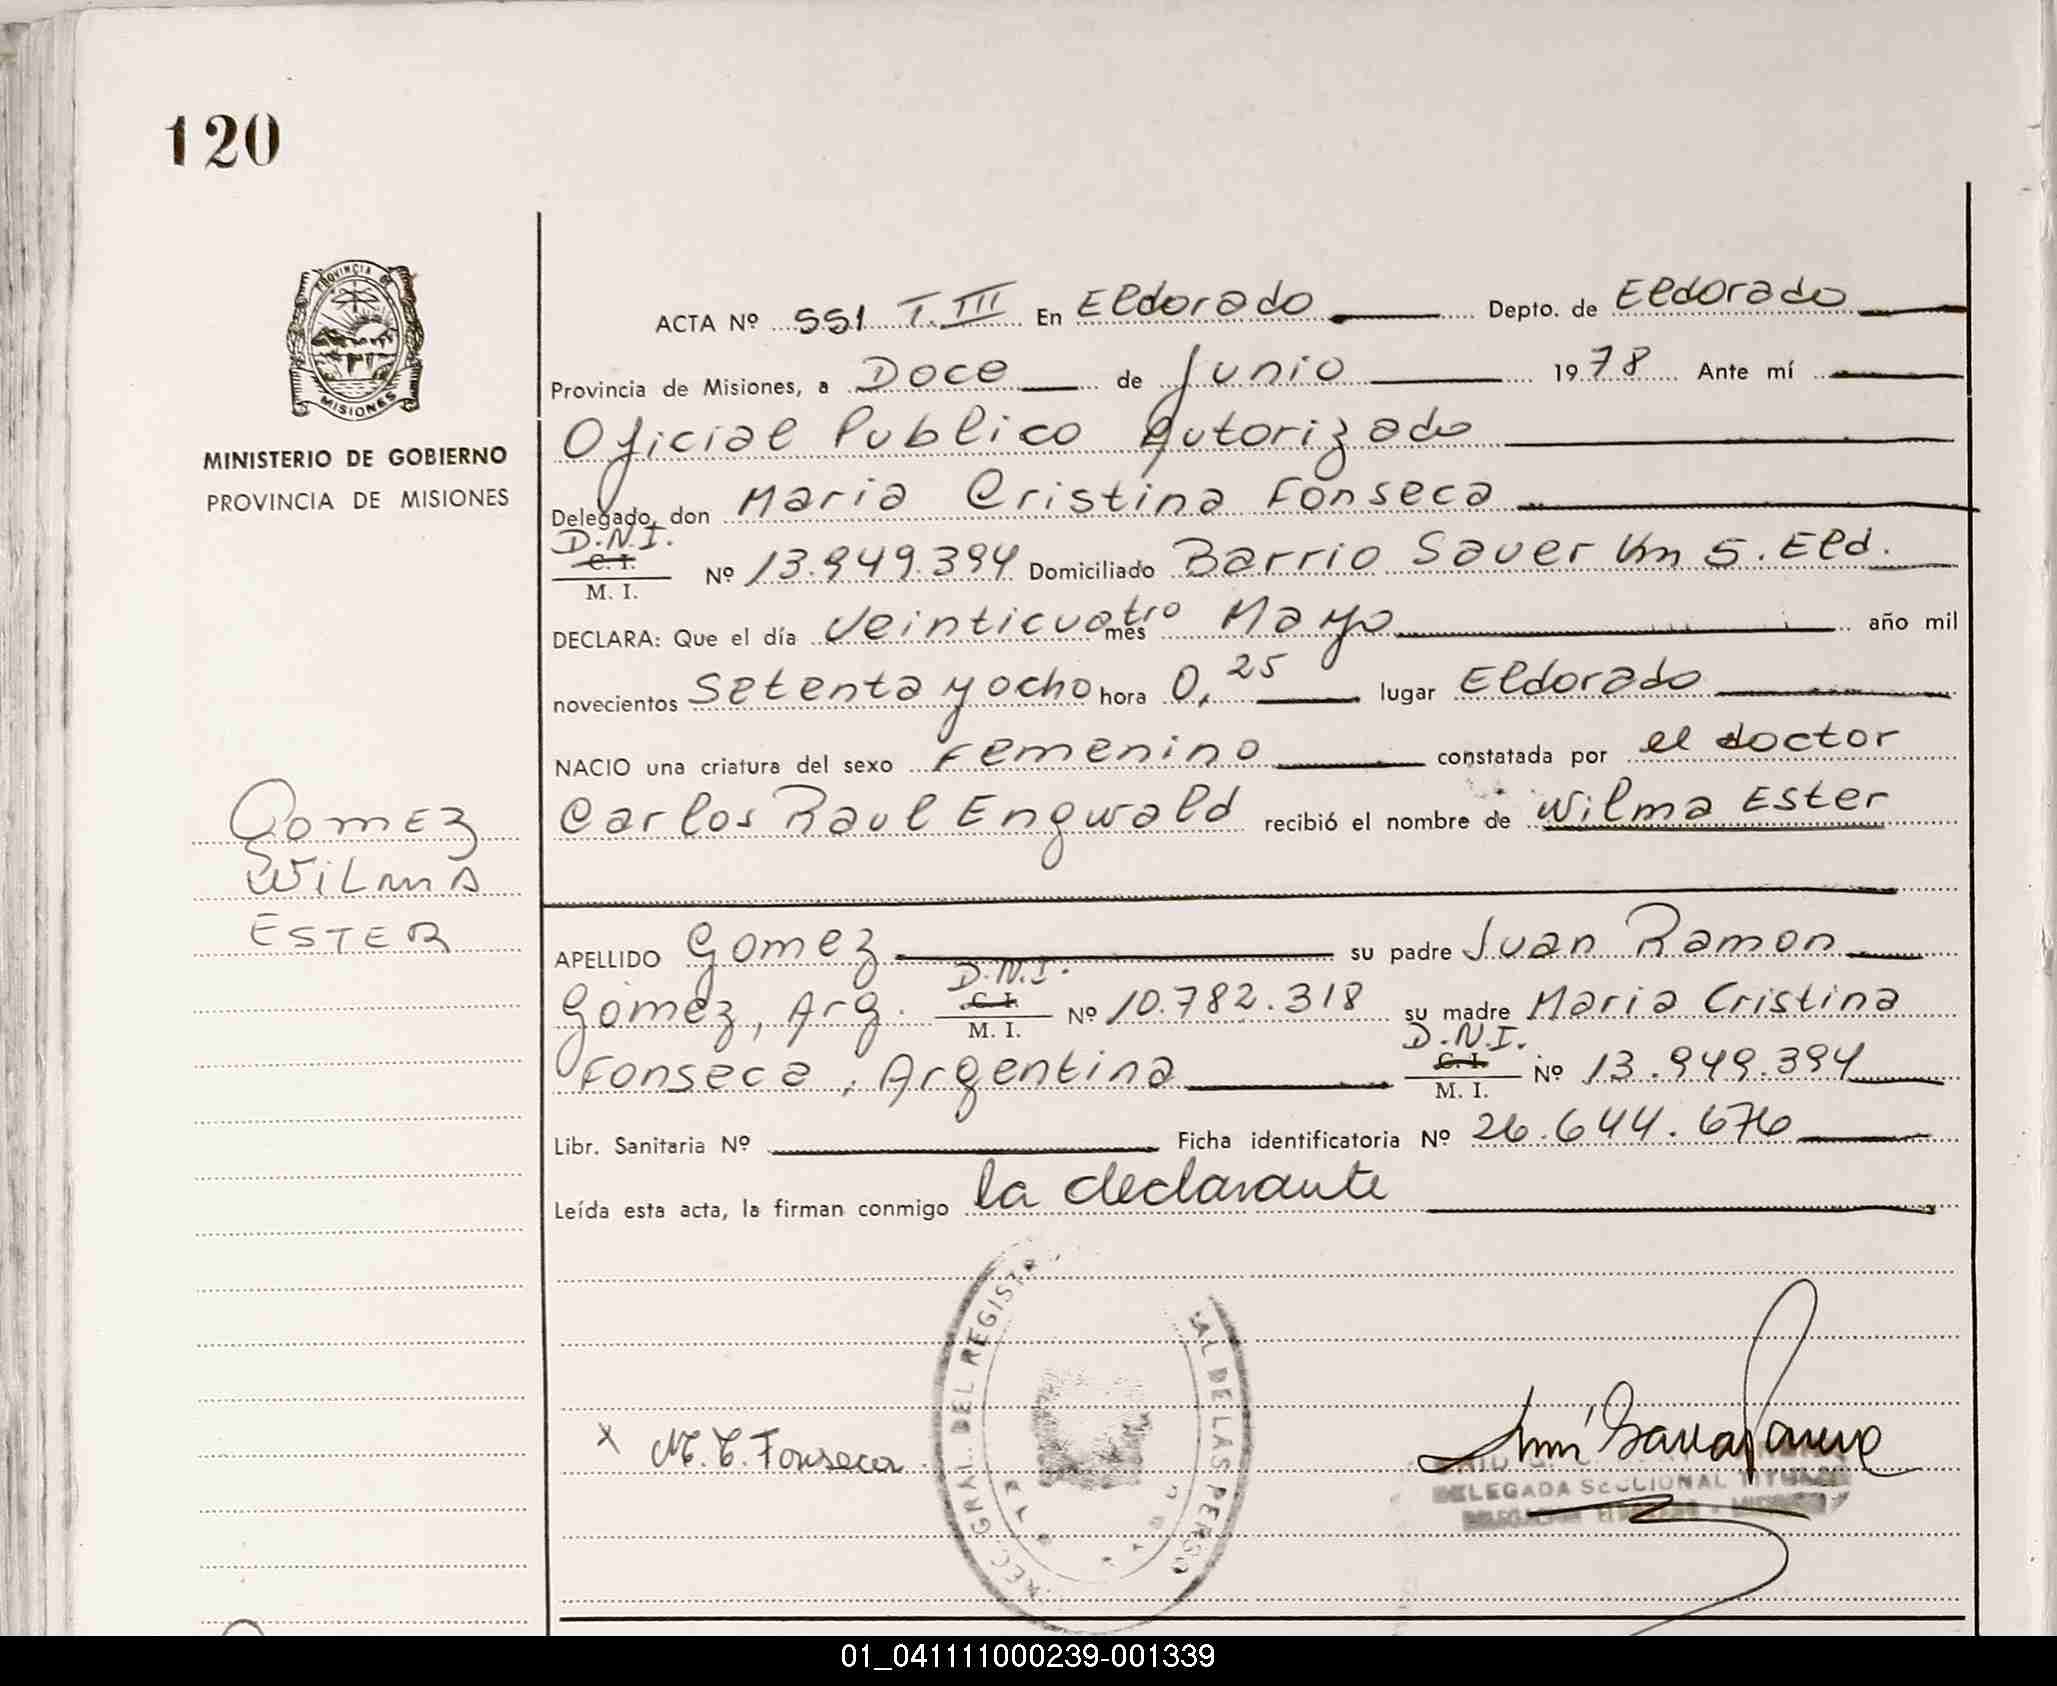 120
PROVINCIA DE
MISIONES
MINISTERIO DE GOBIERNO
PROVINCIA DE MISIONES
Gomez
WiLmA
ESTER
ACTA Nº 551 T. III En Eldorado Depto. de Eldorado
Provincia de Misiones, a Doce de Junio 1978 Ante mí
Oficial Publico Autorizado
Delegado, don Maria Cristina Fonseca
D.N.I.
C. I.
M. I. Nº 13.949.394 Domiciliado Barrio Sauer Km 5. Eld.
DECLARA: Que el día Veinticuatro mes Mayo año mil
novecientos Setenta y ocho hora 0,25 lugar Eldorado
NACIO una criatura del sexo Femenino constatada por el doctor
Carlos Raul Engwald recibió el nombre de Wilma Ester
APELLIDO Gomez su padre Juan Ramon
Gomez, Arg. D.N.I. C. I. M. I. Nº 10.782.318 su madre Maria Cristina
Fonseca, Argentina D.N.I. C. I. M. I. Nº 13.949.394
Libr. Sanitaria Nº Ficha identificatoria Nº 26.644.676
Leída esta acta, la firman conmigo la declarante
GRAL. DEL REGIST
DE LAS PERSO
x M. C. Fonseca
DELEGADA SECCIONAL TITULAR
01_041111000239-001339